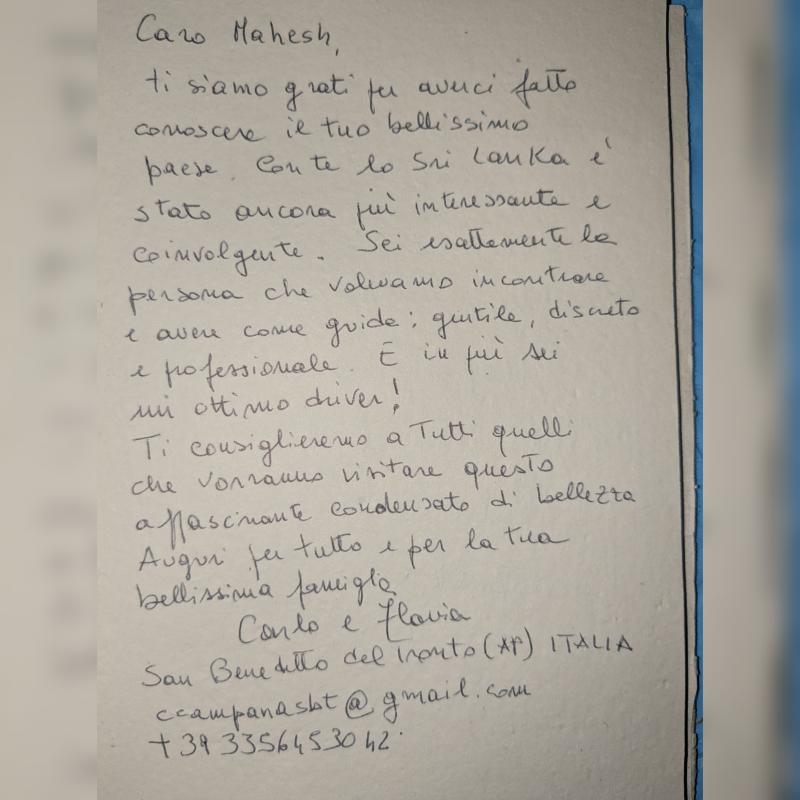 Caro Mahesh,
ti siamo grati per averci fatto
conoscere il tuo bellissimo
paese. Con te lo Sri Lanka é
stato ancora più interessante e
coinvolgente. Sei esattamente la
persona che volevamo incontrare
e avere come guida: gentile, discreto
e professionale. E in più sei
un ottimo driver!
Ti consiglieremo a Tutti quelli
che vorranno visitare questo
affascinante condensato di bellezza
Auguri per tutto e per la tua
bellissima famiglia
Carlo e Flavia
San Benedetto del Tronto (AP) ITALIA
ccampanasbt@gmail.com
+39 3356453042